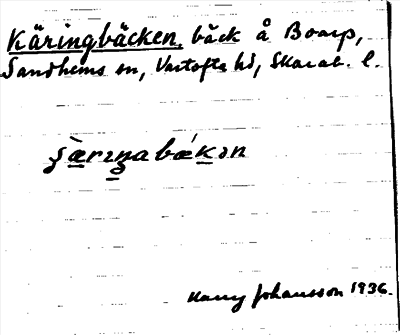 Käringbäcken, bäck å Boarp,
Sandhems sn, Vartofta hd, Skarab. l.
ʂæ̀rɪŋabǽkən
Harry Johansson 1936.